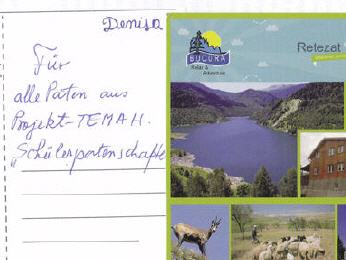 Denisa
Für
alle Paten aus
Projekt-TEMAH.
"Schülerpatenschafte
BUCURA
Relax &
Adventure
Retezat